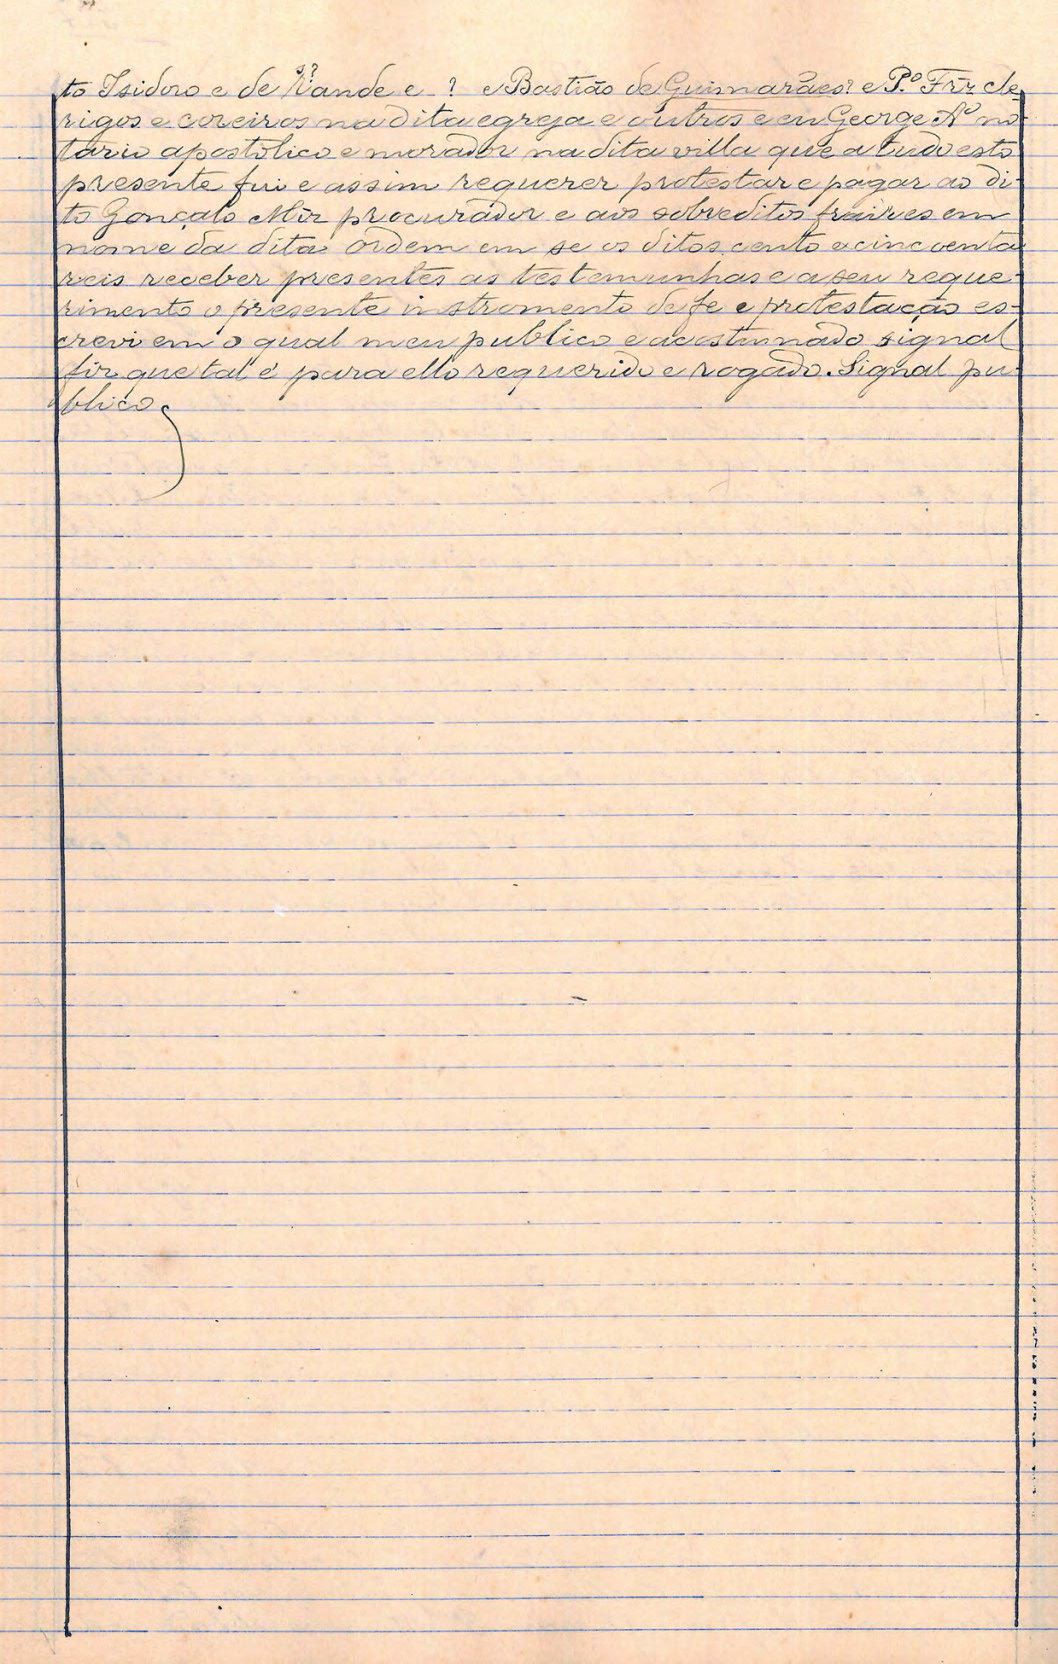 to Isidoro e de Vande e ? e Bastião de Guimarães? e P.º Frz cle-
rigos e coreiros na dita egreja e outros e eu George Aº no-
tario apostolico e morador na dita villa que a tudo esto
presente fui e assim requerer protestar e pagar ao di-
to Gonçalo Miz procurador e aos sobreditos fraires em
nome da dita ordem em se os ditos cento e cincoenta
reis receber presentes as testemunhas e a seu reque-
rimento o presente instromento de fe e protestação es-
crevi em o qual meu publico e acostumado signal
fiz que tal é para ello requerido e rogado. Signal pu-
blico